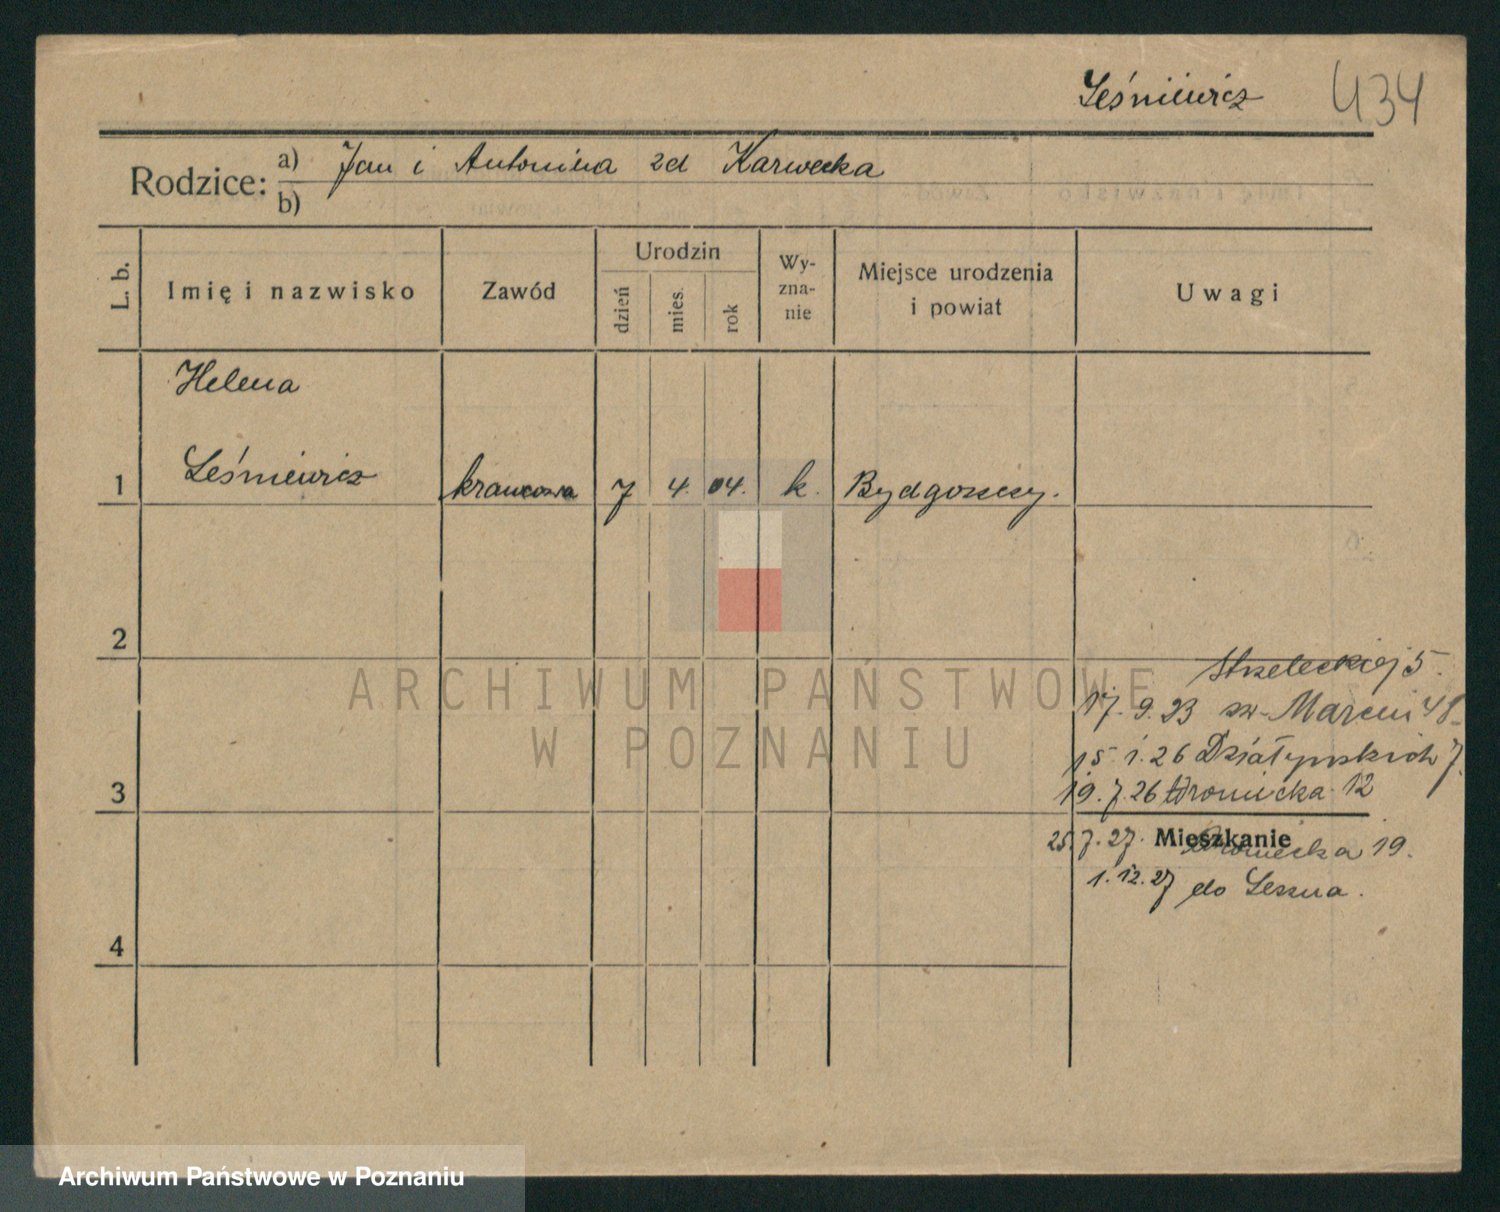 Leśniewicz 434
Rodzice: a) Jan i Antonina zd Karwecka
b)
L. b.
Imię i nazwisko
Zawód
Urodzin
dzień
mies.
rok
Wy-
zna-
nie
Miejsce urodzenia
i powiat
Uwagi
Helena
1 Leśniewicz krawcowa 7 4. 04. k. Bydgoszczy.
2
ARCHIWUM PAŃSTWOWE
W POZNANIU
Strzeleckiej 5.
17. 9. 23 św. Marcin 48
15. 1. 26 Działyńskich 7.
19. 7. 26 Wroniecka 12
3
25. 7. 27. Mieszkanie
Wroniecka 19.
1. 12. 27 do Leszna.
4
Archiwum Państwowe w Poznaniu